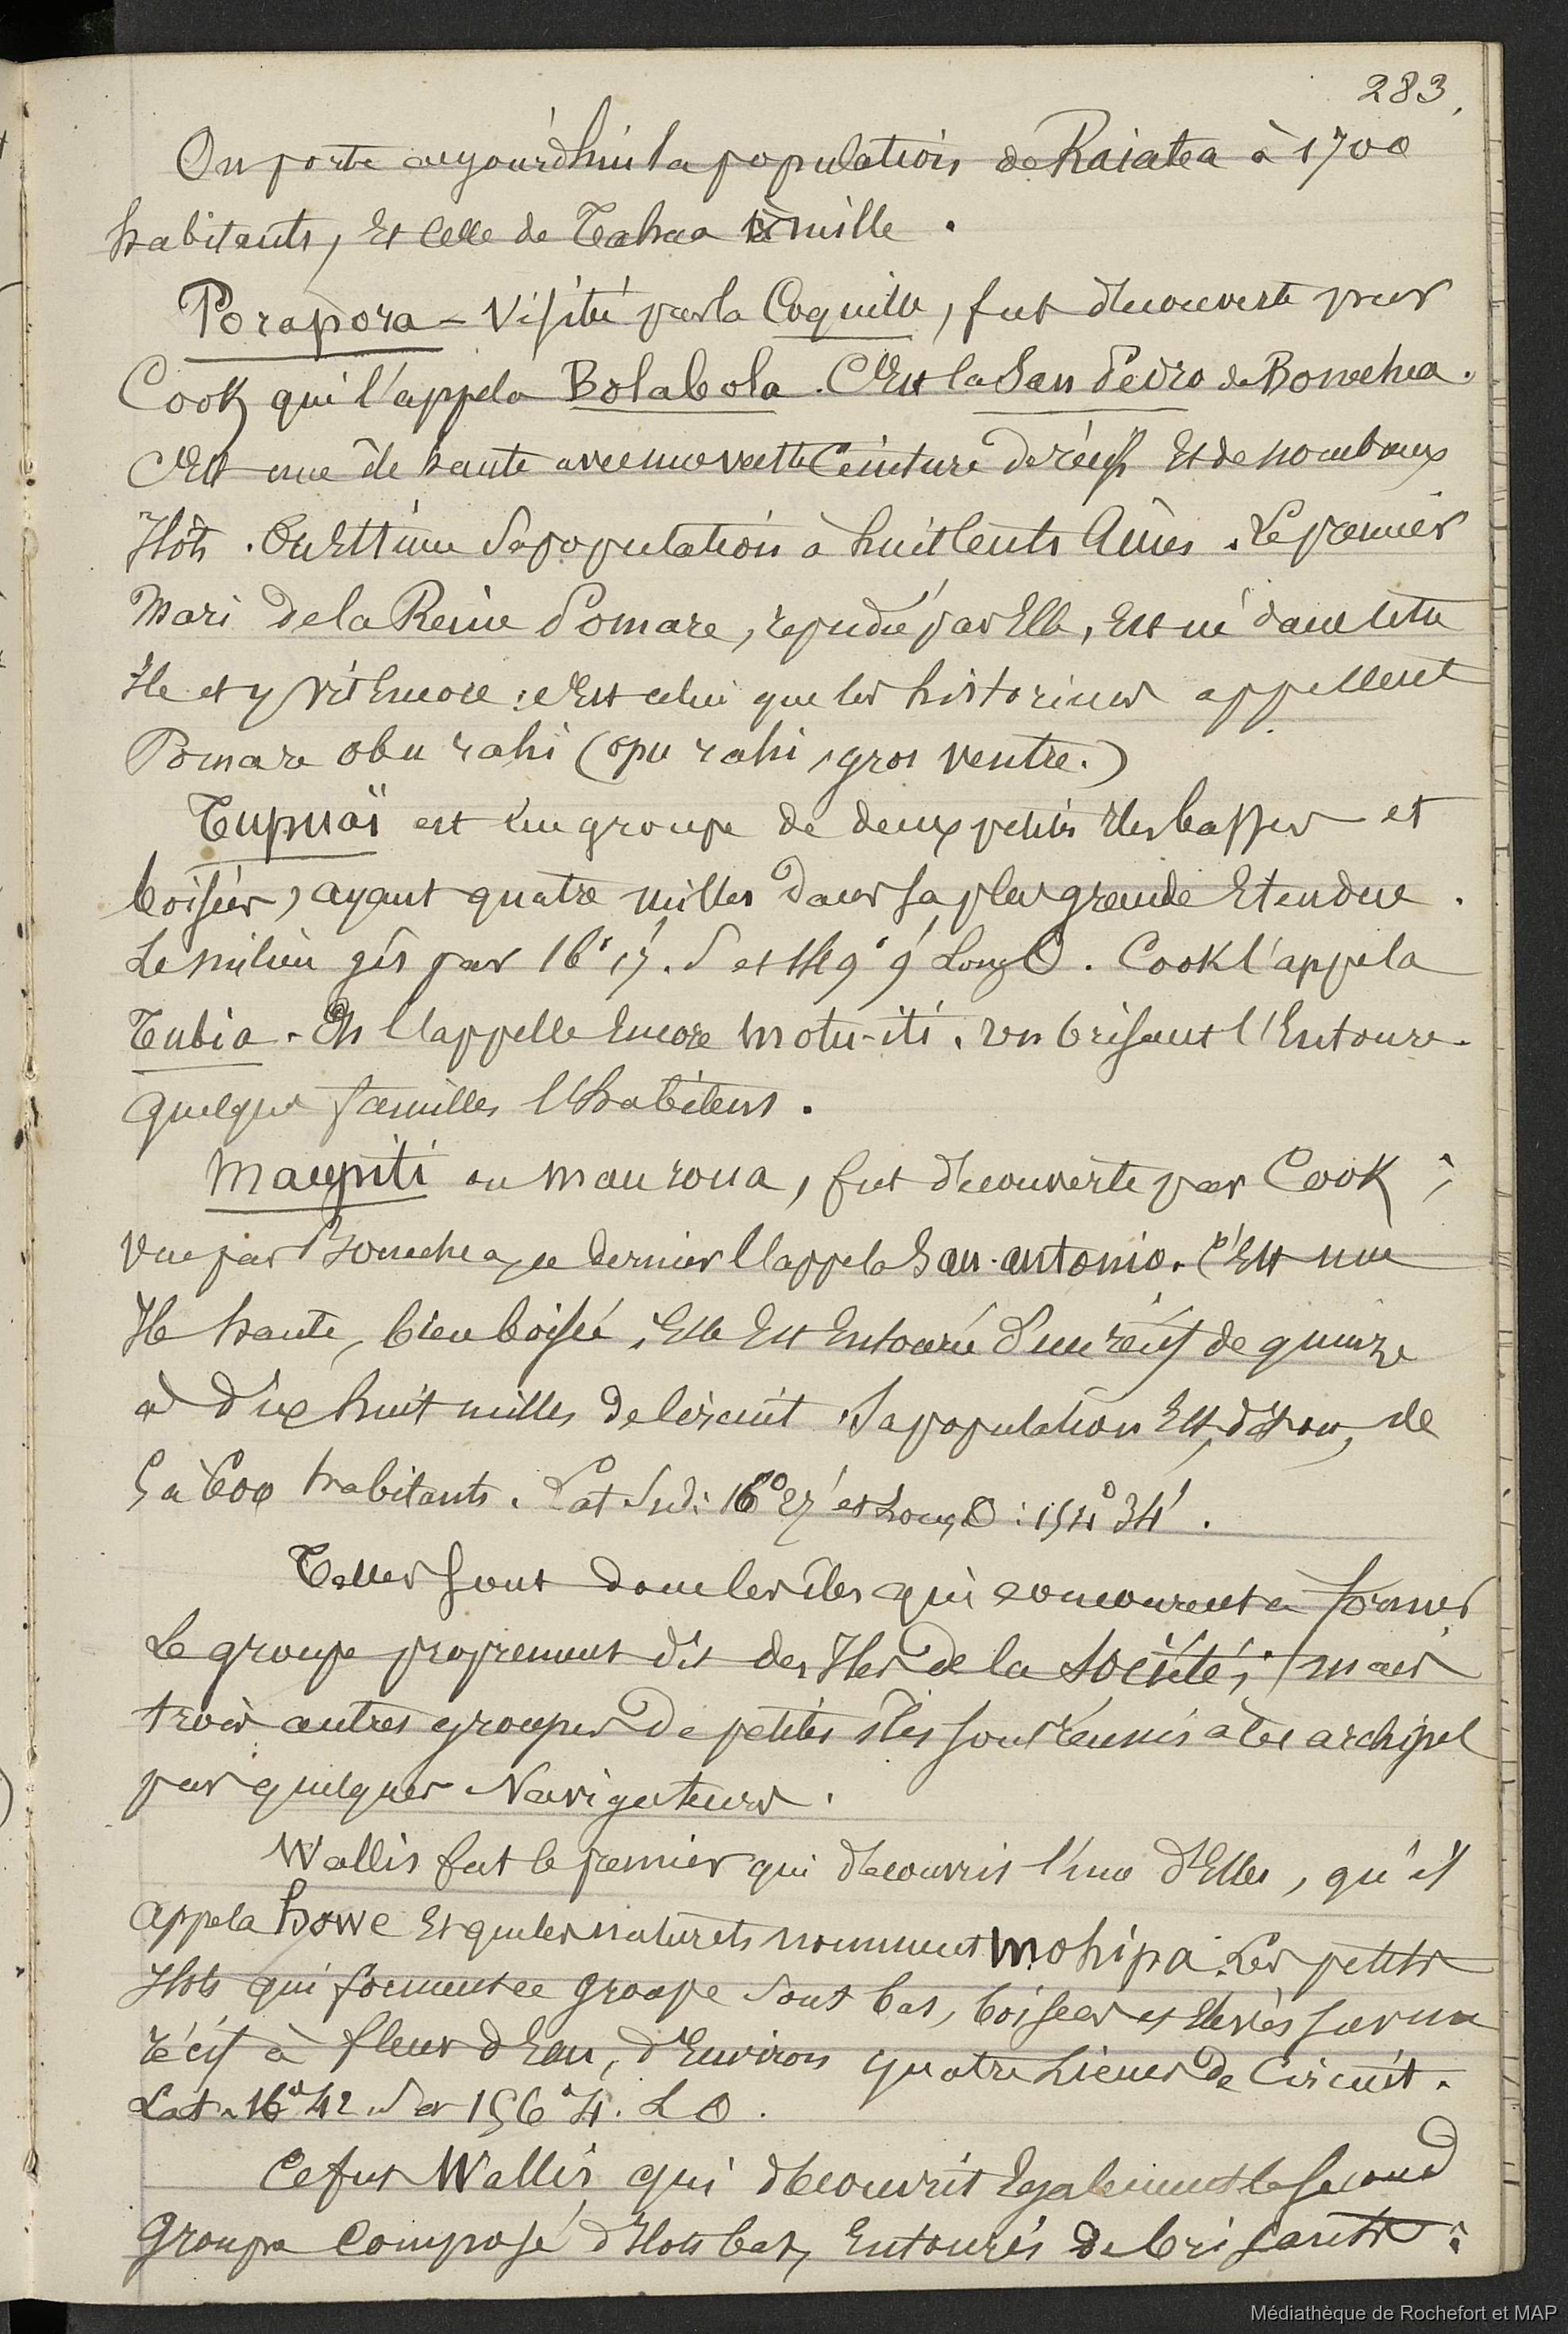 283.
On porte aujourd'hui la population de Raiatea à 1700
habitants, et celle de Tahaa à mille.
Porapora - Visité par la Coquille, fut découverte par
Cook qui l'appela Bolabola. C'est la San Pedro de Bonechea.
C'est une île haute avec une vaste Ceinture de récifs et de nombreux
Ilots. On estime sa population à huit cents âmes. Le premier
Mari de la Reine Pomare, repudié par Elle, est né dans cette
île et y vit encore : c'est celui que les historiens appellent
Pomare obu rahi (opu rahi, gros ventre.)
Tupuaï est un groupe de deux petites Iles basses et
boisées, ayant quatre milles dans sa plus grande étendue.
Le milieu gis par 16° 17'. S et 9° 9' Long O. Cook l'appela
Tubia. On l'appelle encore Motu-iti. Un brisant l'entoure.
quelques familles l'habitent.
Maupiti ou Mauroua, fut découverte par Cook ;
vue par Bonechea, ce dernier l'appela San-antonio. C'est une
Ile haute, bien boisée, Elle est entourée d'un récif de quinze
à dix huit milles de circuit. Sa population est, dit-on, de
5 à 600 habitants. Lat Sud: 16° 27' et Long O : 154° 34'.
Telles sont donc les îles qui concourent à former
Le groupe proprement dit des Iles de la Société ; mais
trois autres groupes de petites îles sont réunis à cet archipel
par quelques Navigateurs.
Wallis fut le premier qui découvrit l'une d'Elles, qu'il
appela howe et que les naturels nomment Mohipa. Les petits
Ilots qui forment ce groupe sont bas, boisés et élevés sur un
récif à fleur d'Eau, d'environ quatre Lieues de Circuit.
Lat. 16° 42. S et 156° 4. L O.
Ce fut Wallis qui découvrit également le second
Groupe composé d'Ilots bas, entourés de brisants :
Médiathèque de Rochefort et MAP